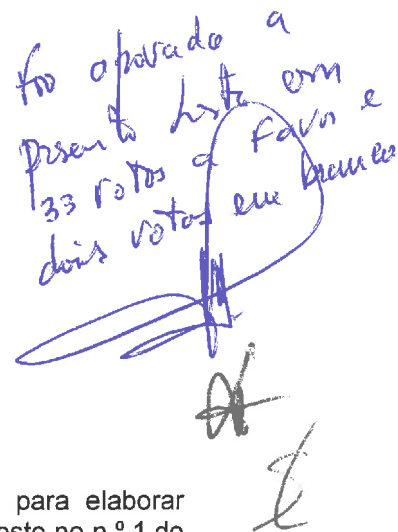 Foi aprovado a
presente lista com
33 votos a favor e
dois votos em branco
para elaborar
osto no n.º 1 do